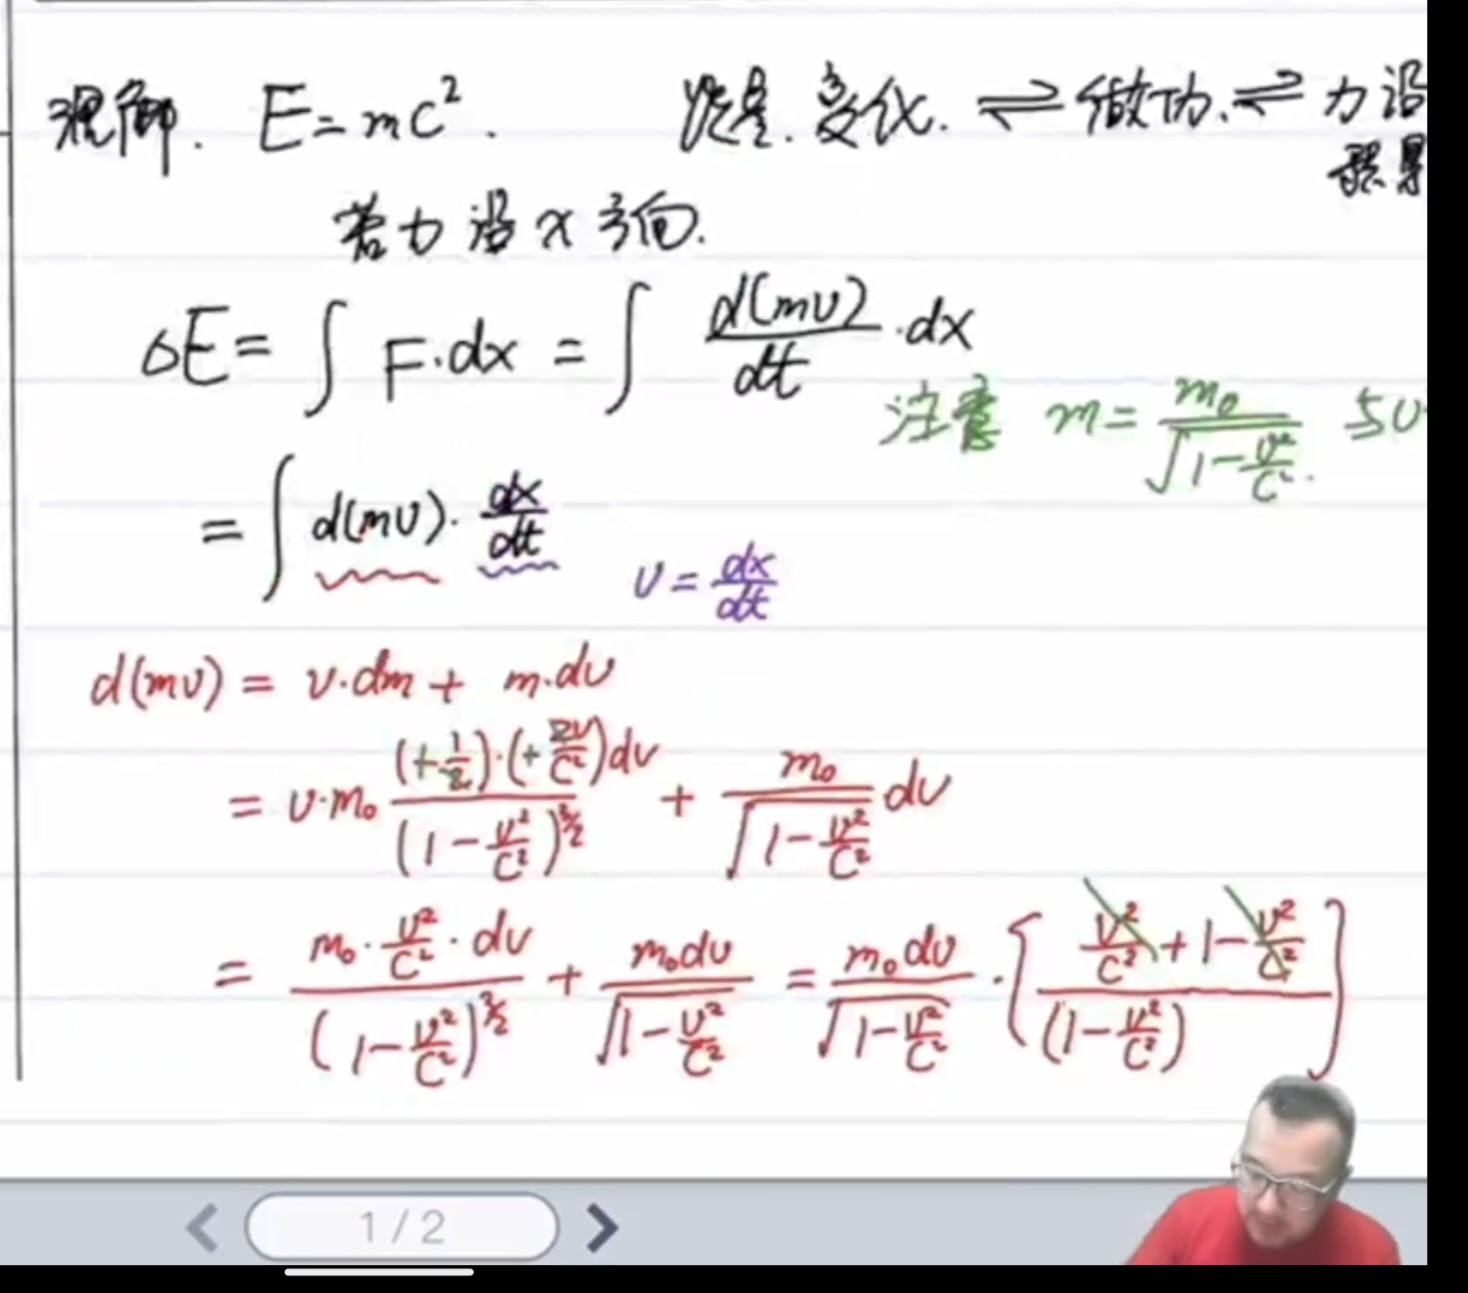 理解. E=mc². 能量.变化. ⇌ 做功. ⇌ 力沿
积累
若力沿x方向.
△E= ∫ F·dx = ∫ d(mv)/dt ·dx
注意 m= m₀/√(1-v²/c²). 与v
= ∫ d(mv)· dx/dt v= dx/dt
d(mv) = v·dm + m·dv
= v·m₀ (+1/2)·(+2v/c²)dv/(1-v²/c²)^(3/2) + m₀/√(1-v²/c²) dv
= m₀·v²/c²·dv/(1-v²/c²)^(3/2) + m₀dv/√(1-v²/c²) = m₀dv/√(1-v²/c²) ·[(v²/c²+1-v²/c²)/(1-v²/c²)]
1 / 2